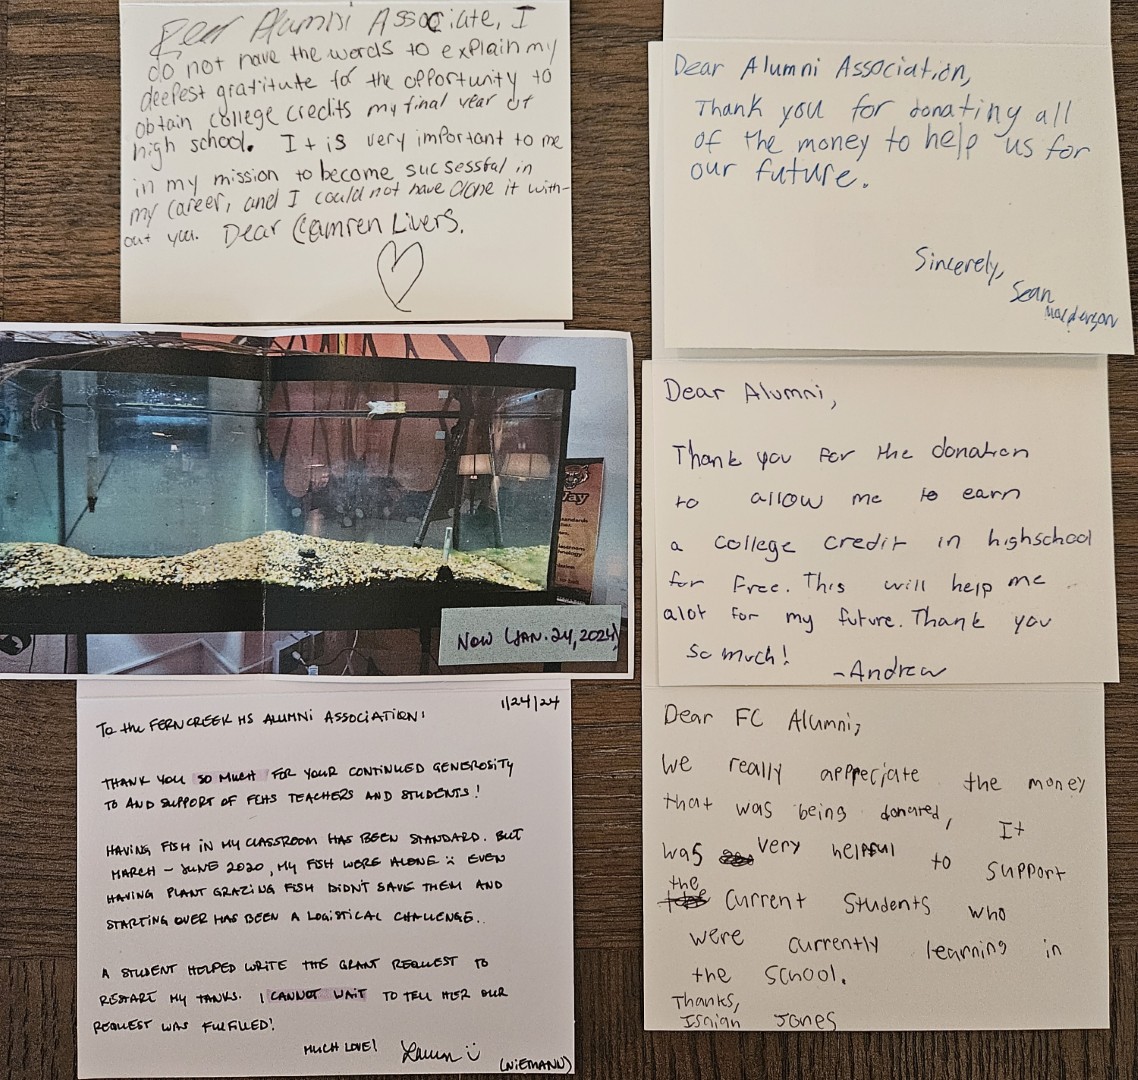 Dear Alumni Associate, I
do not have the words to explain my
deepest gratitute for the opportunity to
obtain college credits my final year of
high school. It is very important to me
in my mission to become sucsessful in
my career, and I could not have done it with-
out you. Dear Camren Livers.
Dear Alumni Association,
Thank you for donating all
of the money to help us for
our future.
Sincerely,
Sean
Dear Alumni,
Thank you for the donation
to allow me to earn
a college credit in highschool
for free. This will help me
alot for my future. Thank you
so much!
-Andrew
Jay
NOW (JAN. 24, 2024)
1/24/24
To the FERN CREEK HS ALUMNI ASSOCIATION!
THANK YOU SO MUCH FOR YOUR CONTINUED GENEROSITY
TO AND SUPPORT OF FCHS TEACHERS AND STUDENTS!
HAVING FISH IN MY CLASSROOM HAS BEEN STANDARD. BUT
MARCH - JUNE 2020, MY FISH WERE ALONE :( EVEN
HAVING PLANT GRAZING FISH DIDN'T SAVE THEM AND
STARTING OVER HAS BEEN A LOGISTICAL CHALLENGE.
A STUDENT HELPED WRITE THE GRANT REQUEST TO
RESTART MY TANKS. I CANNOT WAIT TO TELL HER OUR
REQUEST WAS FULFILLED!
MUCH LOVE!
Lauren :)
(NIEMANN)
Dear FC Alumni,
We really apppeciate the money
that was being donared, It
was very helpful to support
the current students who
were currently learning in
the school.
Thanks,
Isaiah Jones